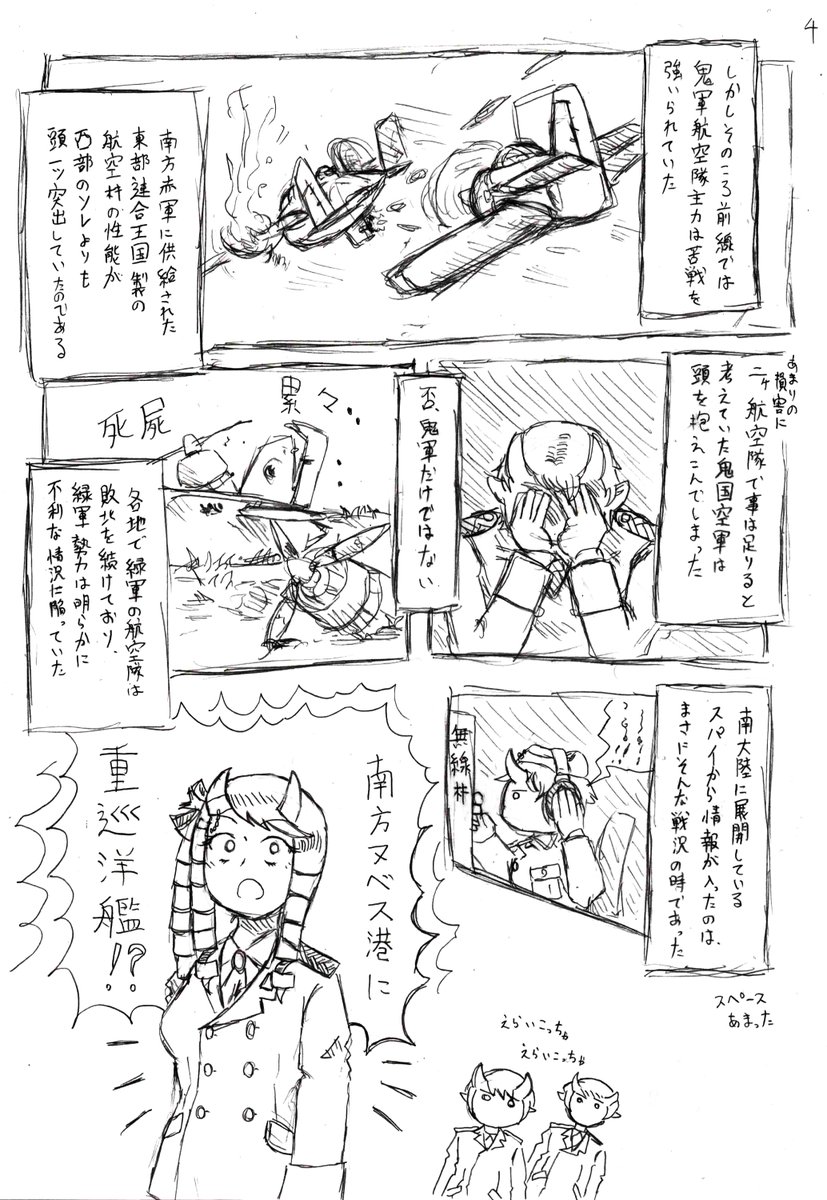 4
しかしそのころ前線では
鬼軍航空隊主力は苦戦を
強いられていた
南方赤軍に供給された
東部連合王国製の
航空井の性能が
西部のソレよりも
頭一ツ突出していたのである
あまりの
損害に
二ヶ航空隊で事は足りると
考えていた鬼国空軍は
頭を抱えこんでしまった
否、鬼軍だけではない
死屍
累々…
各地で緑軍の航空隊は
敗北を続けており、
緑軍勢力は明らかに
不利な情況に陥っていた
南大陸に展開している
スパイから情報が入ったのは、
まさにそんな戦況の時であった
無線井
南方ヌベス港に
重巡洋艦!?
スペース
あまった
えらいこっちゃ
えらいこっちゃ